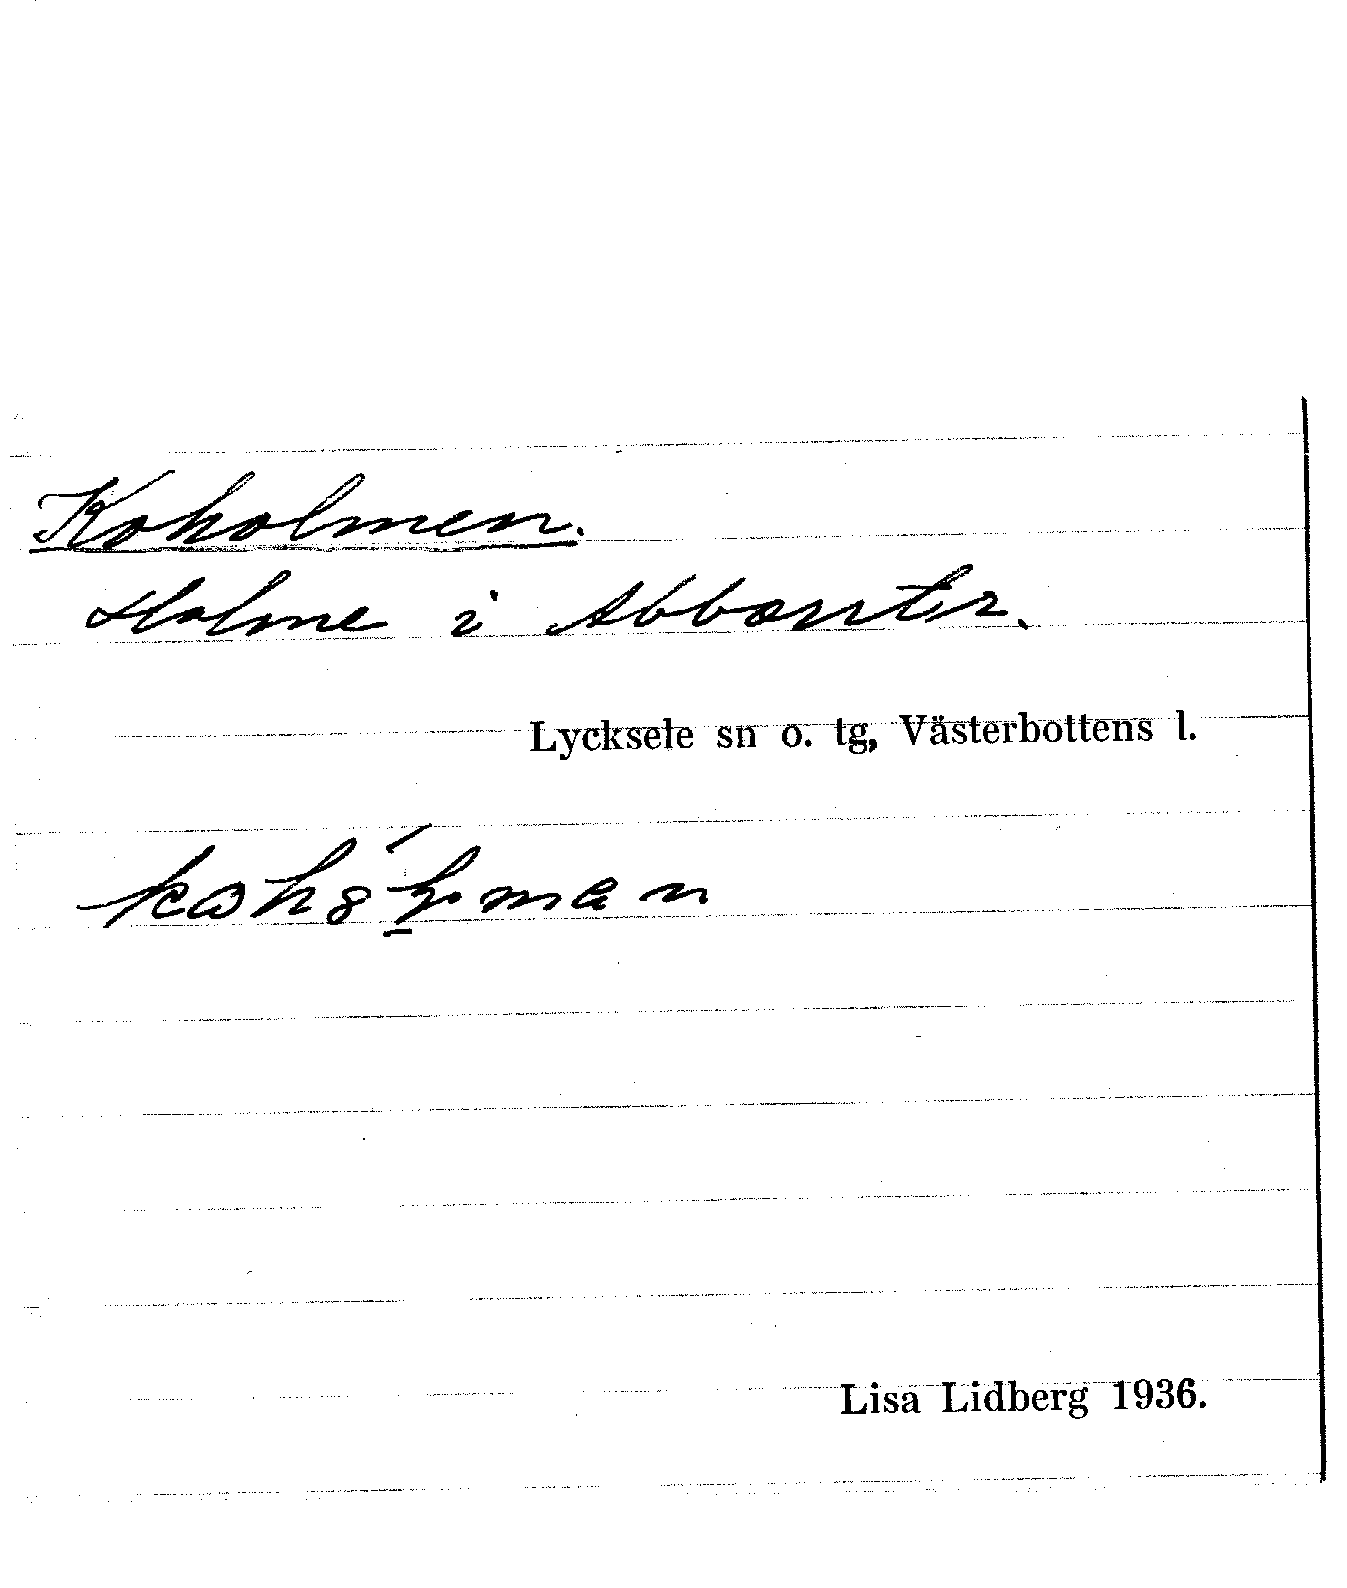 Koholmen.
Holme i Abborrtr.
Lycksele sn o. tg, Västerbottens l.
Lisa Lidberg 1936.